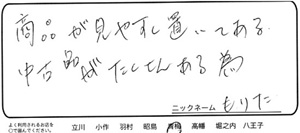 商品が見やすく置いてある
中古品がたくさんある為
ニックネーム もりた
よく利用されるお店を
○で選んでください。 立川 小作 羽村 昭島 青梅 高幡 堀之内 八王子